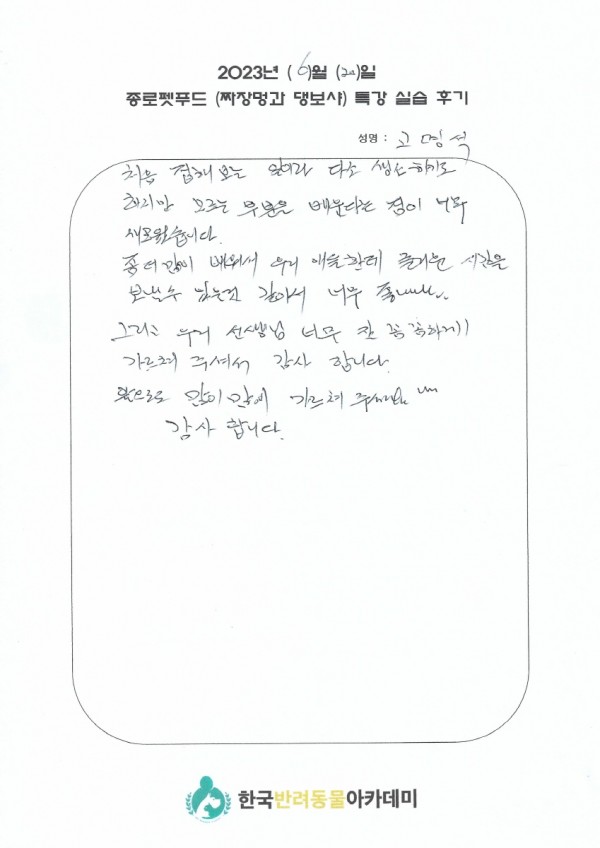 2023년 (6)월 (20)일
종로펫푸드 (짜장멍과 댕보샤) 특강 실습 후기
성명 : 고명석
처음 접해보는 일이라 다소 생소하기도
하지만 모르는 부분을 배운다는 점이 너무
새로웠습니다.
좀 더 많이 배워서 우리 애들한테 즐거운 시간을
보낼수 있는것 같아서 너무
그리고 우리 선생님 너무 잘 꼼꼼하게!!
가르쳐 주셔서 감사 합니다.
앞으로도 많이 많이 가르쳐 주세요
감사 합니다.
한국반려동물아카데미